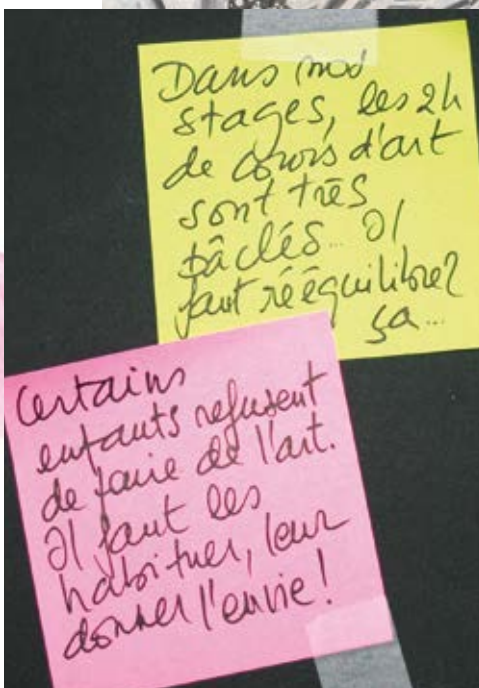 Dans mes
stages, les 2h
de cours d'art
sont très
bâclés... Il
faut rééquilibrer
ça...
Certains
enfants refusent
de faire de l'art.
Il faut les
habituer, leur
donner l'envie!